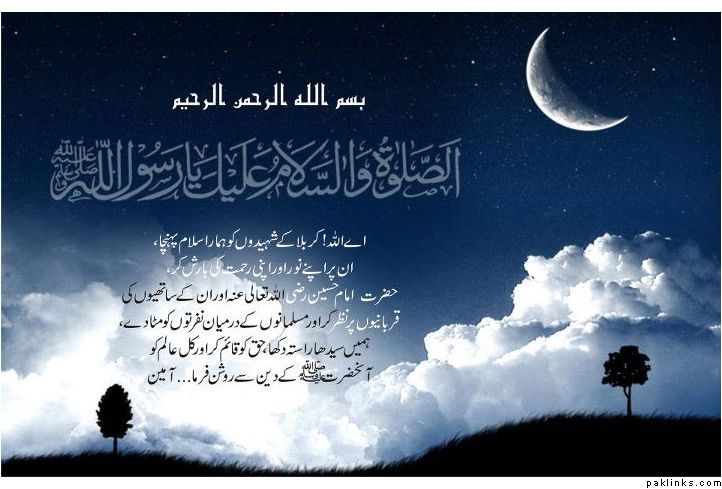 بسم الله الرحمن الرحيم
اَلصَّلوٰةُ وَالسَّلَامُ عَلَيْكَ يَا رَسُوْلَ اللّٰه ﷺ
اے اللہ! کربلا کے شہیدوں کو ہمارا سلام پہنچا،
ان پر اپنے نور اور اپنی رحمت کی بارش کر،
حضرت امام حسین رضی اللہ تعالیٰ عنہ اور ان کے ساتھیوں کی
قربانیوں پر نظر کر اور مسلمانوں کے درمیان نفرتوں کو مٹا دے،
ہمیں سیدھا راستہ دکھا، حق کو قائم کر اور کل عالم کو
آنحضرت ﷺ کے دین سے روشن فرما... آمین
paklinks.com